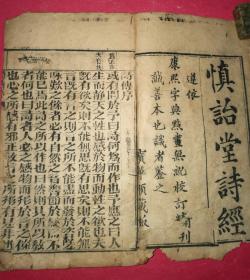 慎詒堂詩經
遵依
康熙字典點畫無訛校訂刊
誠善本也識者鑒之
詩傳序
或有問於予曰詩何為而作也予應之曰人
生而靜天之性也感於物而動性之欲也夫
既有欲矣則不能無思既有思矣則不能無
言既有言矣則言之所不能盡而發於咨嗟
咏歎之餘者必有自然之音響節奏而不
能已焉此詩之所以作也曰然則其所以教
者何也曰詩者人心之感物而形於言之餘
也心之所感有邪正故言之所形有是非